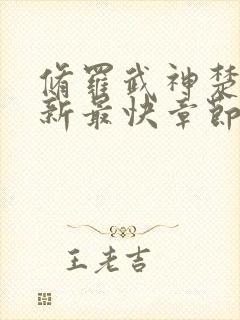 脩羅武神楚
新最快章節
王老吉